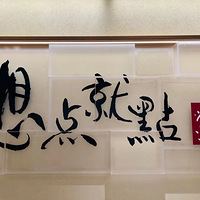 想点就點